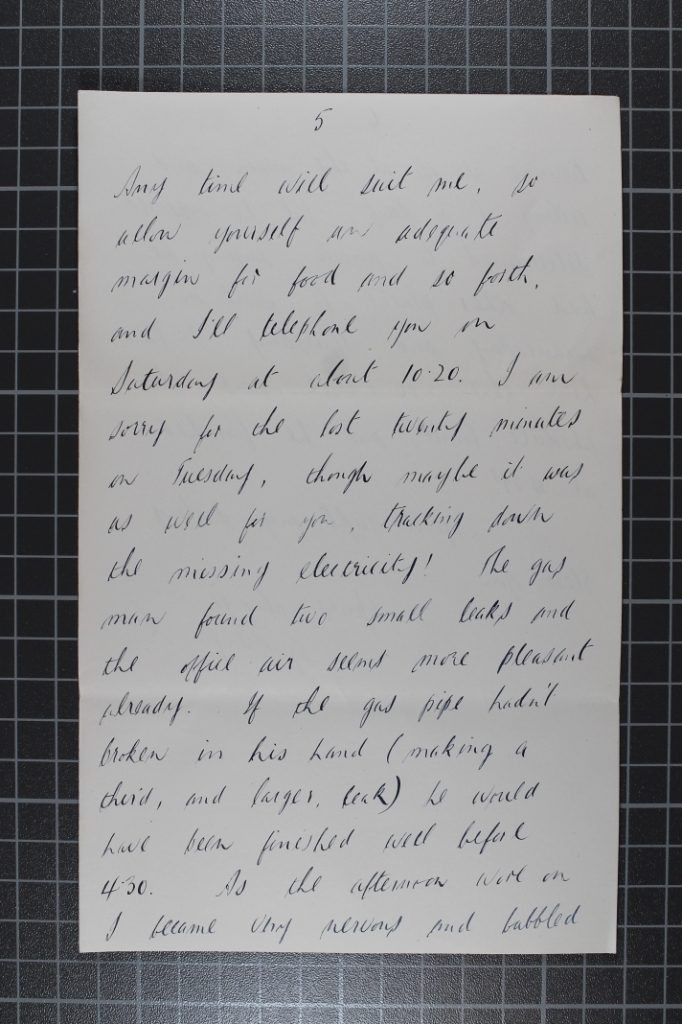 5
Any time will suit me, so
allow yourself an adequate
margin for food and so forth,
and I'll telephone you on
Saturday at about 10.20. I am
sorry for the lost twenty minutes
on Tuesday, though maybe it was
as well for you, tracking down
the missing electricity! The gas
man found two small leaks and
the office air seems more pleasant
already. If the gas pipe hadn't
broken in his hand (making a
third, and larger, leak) he would
have been finished well before
4.30. As the afternoon wore on
I became very nervous and babbled